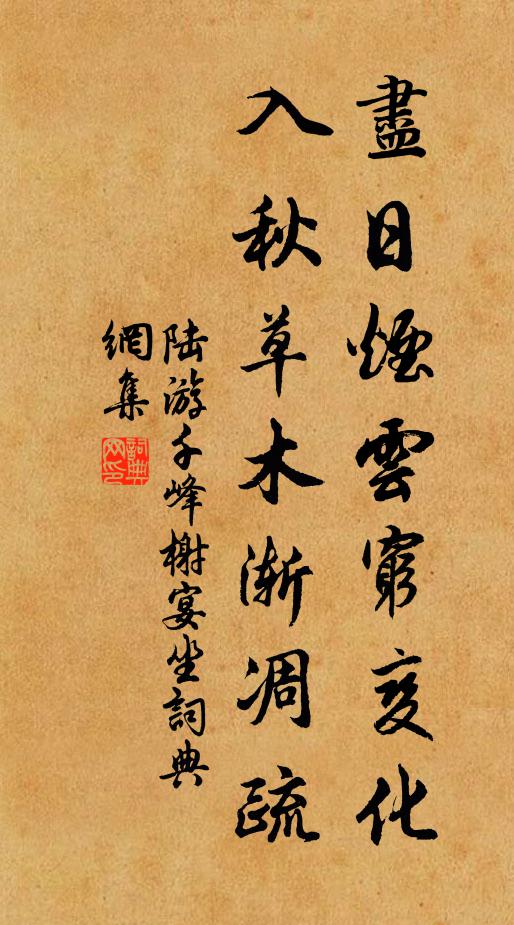 盡日煙雲窮变化
入秋草木渐凋疏
陆游千峰榭宴坐詞典
網集
詞典
网印